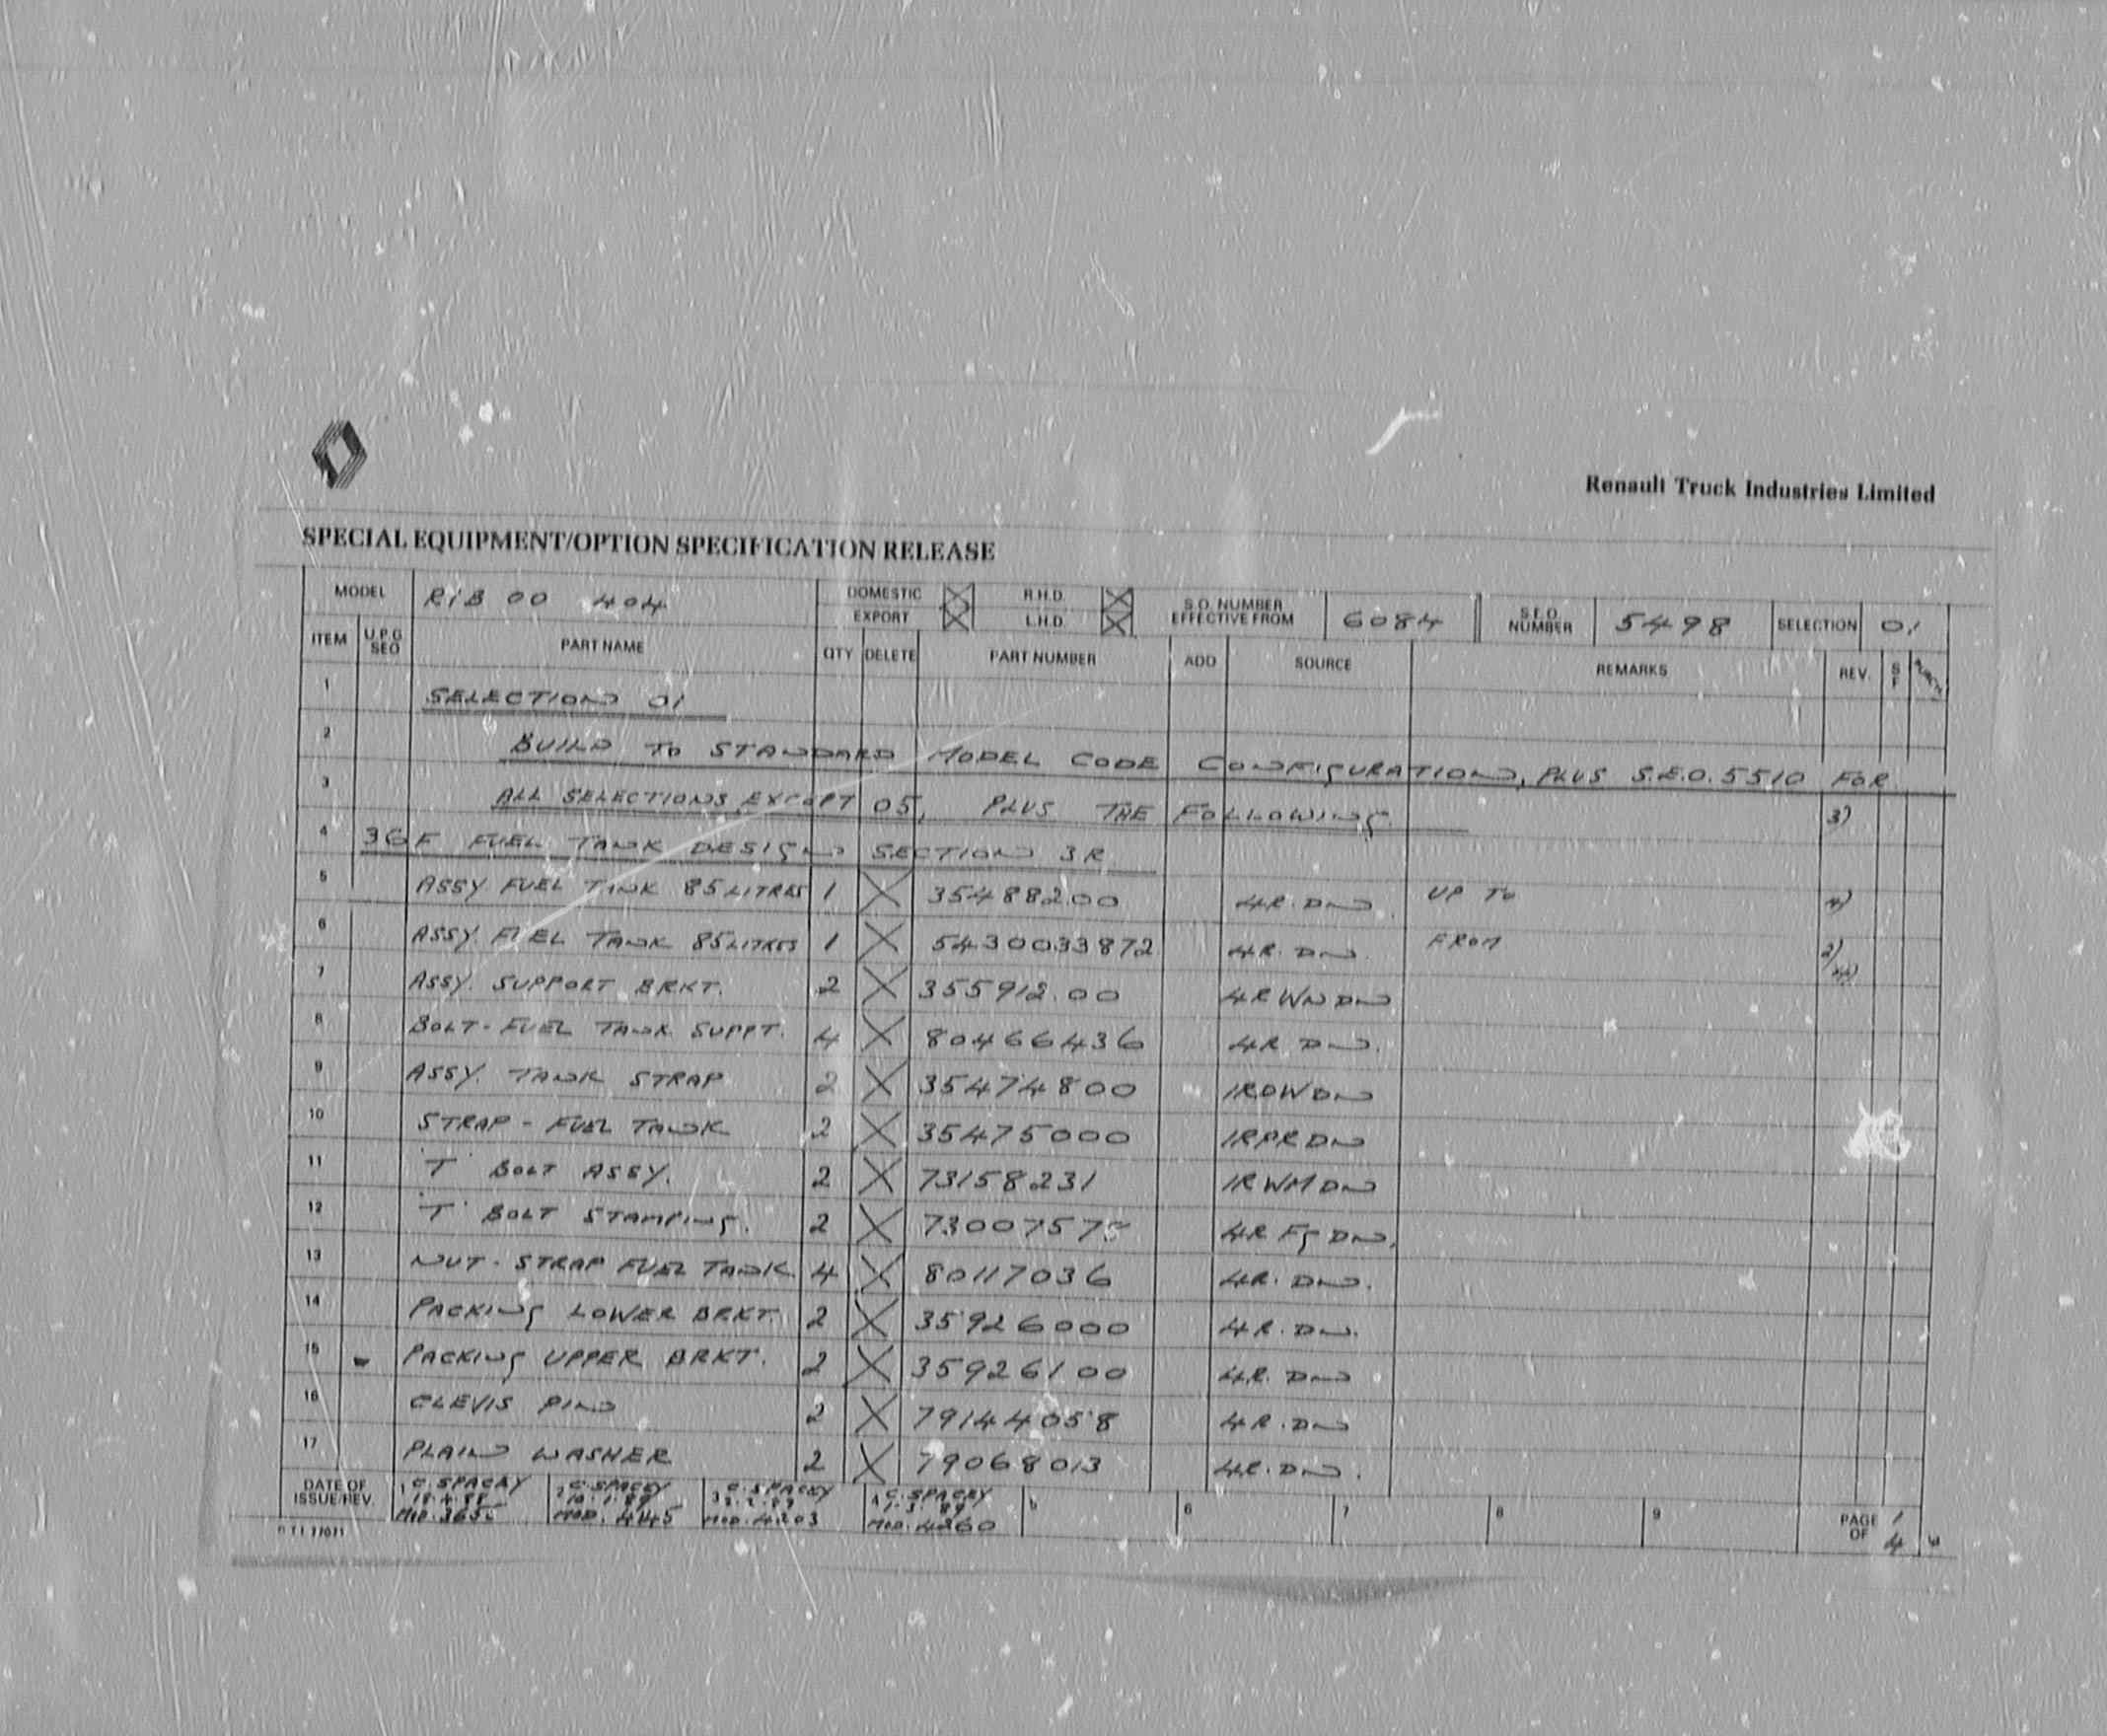 Renault Truck Industries Limited
SPECIAL EQUIPMENT/OPTION SPECIFICATION RELEASE
MODEL RIB 00 404 DOMESTIC X R.H.D. X S.O. NUMBER EFFECTIVE FROM 6084 S.E.O. NUMBER 5498 SELECTION 01
EXPORT X L.H.D. X
ITEM U.P.G. SEO PART NAME QTY DELETE PART NUMBER ADD SOURCE REMARKS REV. S F
1 SELECTION 01
2 BUILD TO STANDARD MODEL CODE CONFIGURATION, PLUS S.E.O. 5510 FOR
3 ALL SELECTIONS EXCEPT 05, PLUS THE FOLLOWING. 3)
4 36F FUEL TANK DESIGN SECTION 3R
5 ASSY FUEL TANK 85 LITRES 1 X 35488200 4R.DN. UP TO 4)
6 ASSY. FUEL TANK 85 LITRES 1 X 5430033872 4R.DN. FROM 2)
7 ASSY. SUPPORT BRKT. 2 X 355912.00 4RWNDN
8 BOLT-FUEL TANK SUPPT. 4 X 80466436 4R DN.
9 ASSY. TANK STRAP 2 X 35474800 1RDWDN
10 STRAP - FUEL TANK 2 X 35475000 1RPRDN
11 'T' BOLT ASSY. 2 X 73158231 1RWMDN
12 'T' BOLT STAMPING. 2 X 4RFGDN.
13 NUT - STRAP FUEL TANK 4 X 80117036 4R.DN.
14 PACKING LOWER BRKT. 2 X 35926000 4R.DN.
15 PACKING UPPER BRKT. 2 X 35926100 4R.DN
16 CLEVIS PIN 2 X 79144058 4R.DN
17 PLAIN WASHER 2 X 79068013 4R.DN.
DATE OF ISSUE/REV. 1 C. SPACEY 2 C. SPACEY 3 C. SPACEY 4 C. SPACEY 5 6 7 8 9 PAGE 1 OF 4
MOD. MOD. 4445 MOD. 4203 MOD. 4260